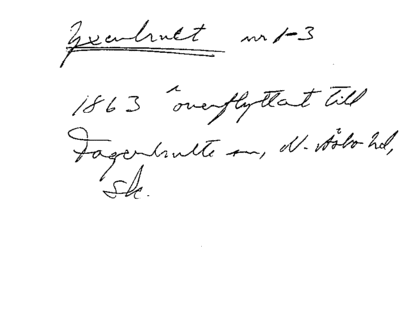 Yxenhult nr 1-3
1863 överflyttat till
Fagerhults sn, N. Åsbo hd,
Sk.